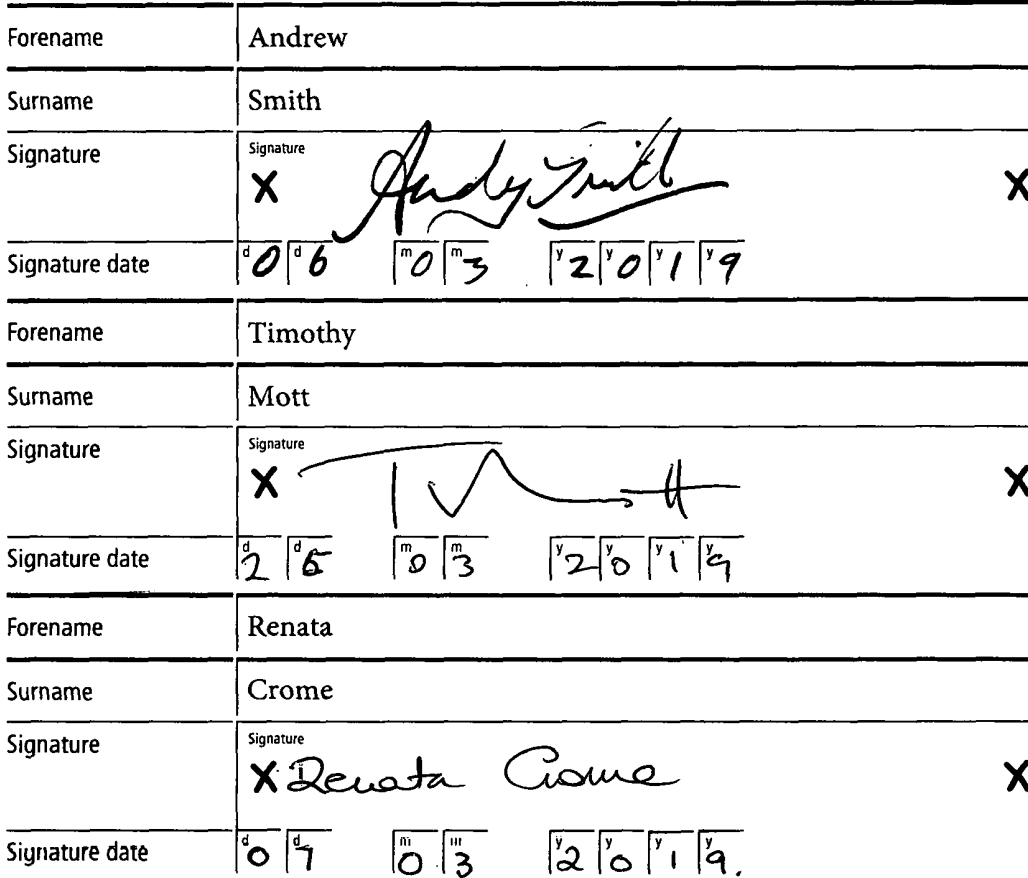 Forename Andrew
Surname Smith
Signature Signature
X Andy Smith X
Signature date d 0 d 6 m 0 m 3 y 2 y 0 y 1 y 9
Forename Timothy
Surname Mott
Signature Signature
X X
Signature date d 2 d m 0 m 3 y 2 y 0 y 1 y 9
Forename Renata
Surname Crome
Signature Signature
X Renata Crome X
Signature date d 0 d 7 m 0 m 3 y 2 y 0 y 1 y 9.